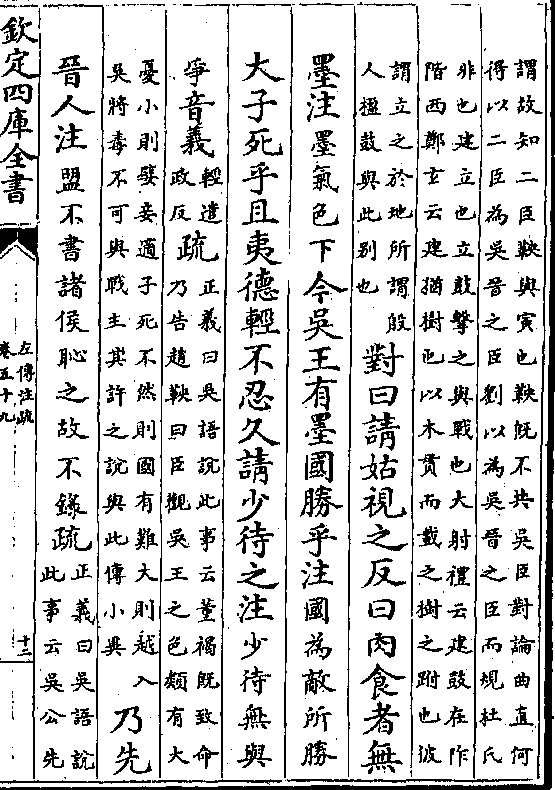 謂故知二臣鞅與寅也鞅既不共吳臣對論曲直何
得以二臣為吳晉之臣劉以為吳晉之臣而規杜氏
非也建立也立鼓擊之與戰也大射禮云建鼓在阼
階西鄭玄云建猶樹也以木貫而載之樹之跗也彼
謂立之於地所謂殷
人楹鼓與此別也
對曰請姑視之反曰肉食者無
墨注墨氣色下今吳王有墨國勝乎注國為敵所勝
大子死乎且夷德輕不忍久請少待之注少待無與
爭音義輕遣
政反疏正義曰吳語說此事云董褐既致命
乃告趙鞅曰臣觀吳王之色類有大
憂小則嬖妾適子死不然則國有難大則越入
吳將毒不可與戰主其許之說與此傳小異
乃先
晉人注盟不書諸侯恥之故不錄疏正義曰吳語說
此事云吳公先
欽定四庫全書
左傳注疏
卷五十九
十二